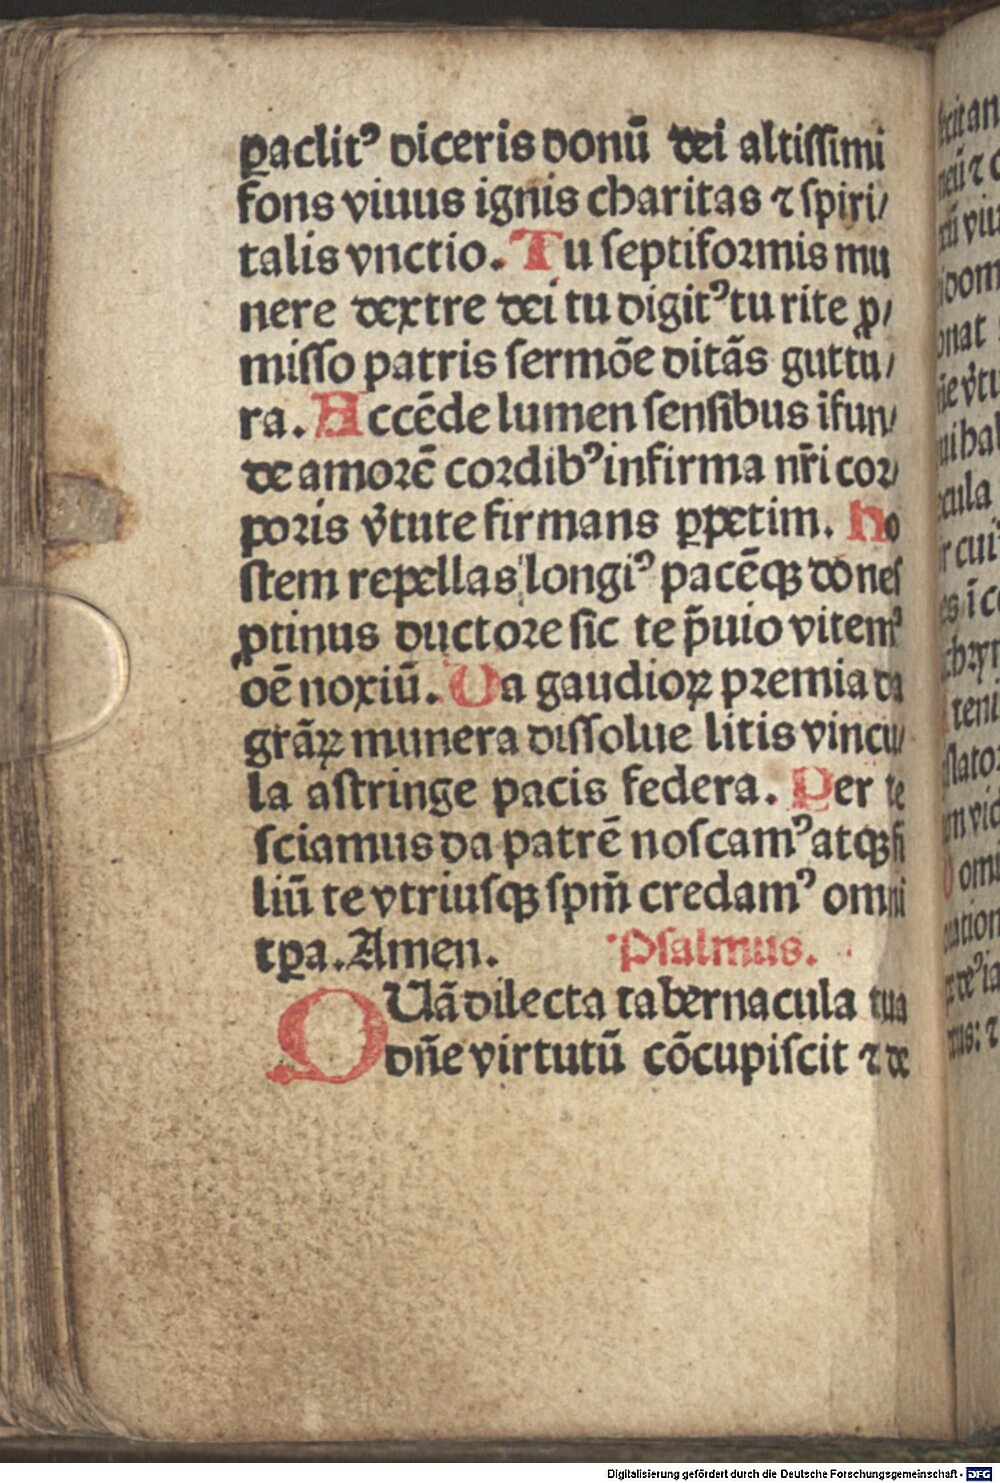 ꝑaclitꝰ diceris donū dei altiſſimi
fons viuus ignis charitas ⁊ ſpiri/
talis vnctio. Tu ſeptiformis mu
nere dextre dei tu digitꝰ tu rite ꝓ/
miſſo patris ſermōe ditās guttu/
ra. Accēde lumen ſenſibus ifun/
de amorē cordibꝰ infirma nr̄i cor/
poris v̓tute firmans ꝑpetim. Ho
ſtem repellas longiꝰ pacēqꝫ dōneſ
ꝓtinus ductore ſic te p̄uio vitemꝰ
oē noxiū. Da gaudioꝝ premia da
grāꝝ munera diſſolue litis vincu/
la aſtringe pacis federa. Per te
ſciamus da patrē noſcamꝰ atqꝫ fi
liū te vtriuſqꝫ ſpm̄ credamꝰ omni
tꝑa. Amen. Pſalmus.
QUā dilecta tabernacula tua
dn̄e virtutū cōcupiſcit ⁊ de
Digitalisierung gefördert durch die Deutsche Forschungsgemeinschaft - DFG